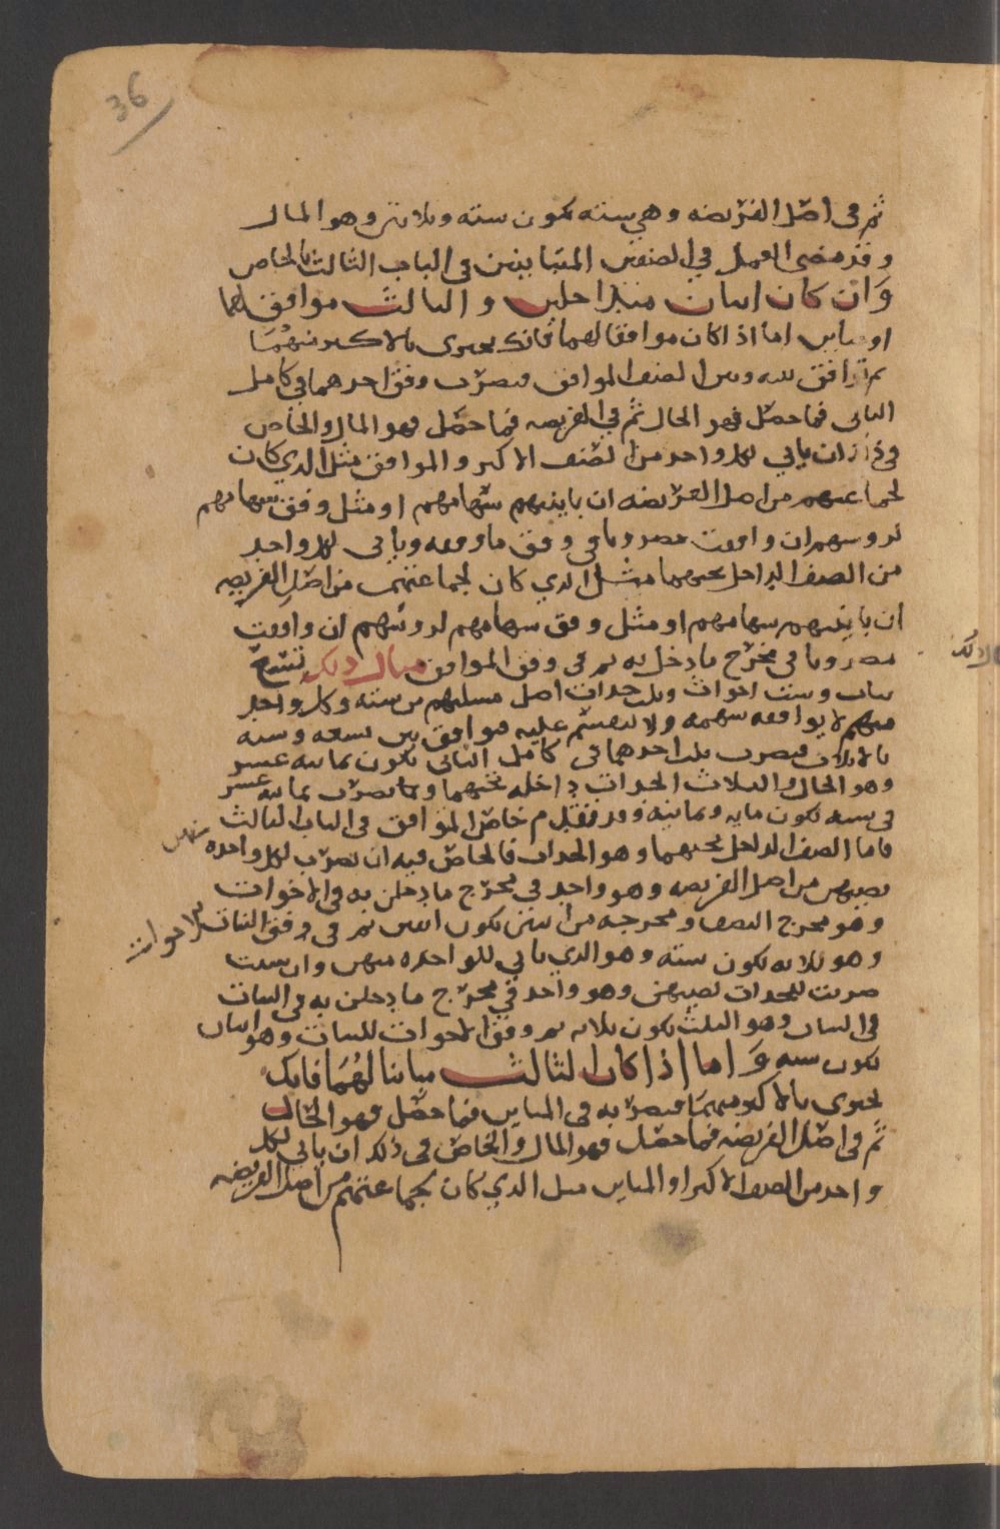 36
ثم فى اصل الفريضه وهى سته تكون سته وثلاثين وهو المال
وقد مضى العمل فى الصنفين المتباينين فى الباب الثالث بالخاص
وَان كان اثنان متداخلين والثالث موافق لهما
او مباين اما اذا كان موافقا لهما فانك تجتزى بالاكبر منهُمَا
ثم توافق بينه وبين الصنف الموافق فتضرب وفق احدهما فى كامل
الثانى فما حصَل فهو الحال ثمَّ فى الفريضه فما حصَل فهو المال والخاص
فى ذلك ان ياتى لكل واحد من الصنف الاكبر والموافق مثل الذي كان
لجماعتهم من اصل الفريضه ان باينتهم سهامهم او مثل وفق سهامهم
لروسهم ان وافقت مضروبا فى وفق ما وافقه وياتى لكل واحد
من الصنف الداخل تحتهما مثل الذي كان لجماعتهم من اصل الفريضه
ان باينتهم سهامهم او مثل وفق سهامهم لروسهم ان وافقت
مضروبا فى مخرج ما دخل به ثم فى وفق الموافق مثال ذلك تسع
بنات وست اخوات وثلاث جدات اصل مسلتهم من سته وكل واحد
منهم لا يوافقه سهمه ولا ينقسم عليه فوافق بين تسعه وسته
بالاثلاث فتضرب ثلث احدهما فى كامل الثانى تكون ثمانيه عشر
وهو الحال والثلاث الجدات داخله تحتهما وتضرب ثمانيه عشر
فى سته تكون مايه وثمانيه وقد تقدم خاص الموافق فى الباب الثالث
فاما الصنف الداخل تحتهما وهو الجدات فالخاص فيه ان تضرب لكل واحده منهن
نصيبهن من اصل الفريضه وهو واحد فى مخرج ما دخلن به فى الاخوات
وهو مخرج النصف ومخرجه من اثنين تكون اثنين ثم فى وفق البنات للاخوات
وهو ثلاثه تكون سته وهو الذي ياتى للواحده منهن وان شيت
ضربت للجدات نصيبهن وهو واحد فى مخرج ما دخلن به فى البنات
فى البنات وهو الثلث تكون ثلاثه ثم وفق الاخوات للبنات وهو اثنان
تكون سته وَاما اذا كان الثالث مباينا لهُمَا فانك
تجتزى بالاكبر منهمَا فتضربه فى المباين فما حصَل فهو الحال
ثم فى اصل الفريضه فما حصَل فهو المال والخاص فى ذلك ان ياتى لكل
واحد من الصنف الاكبر او المباين مثل الذي كان لجماعتهم من اصل الفريضه